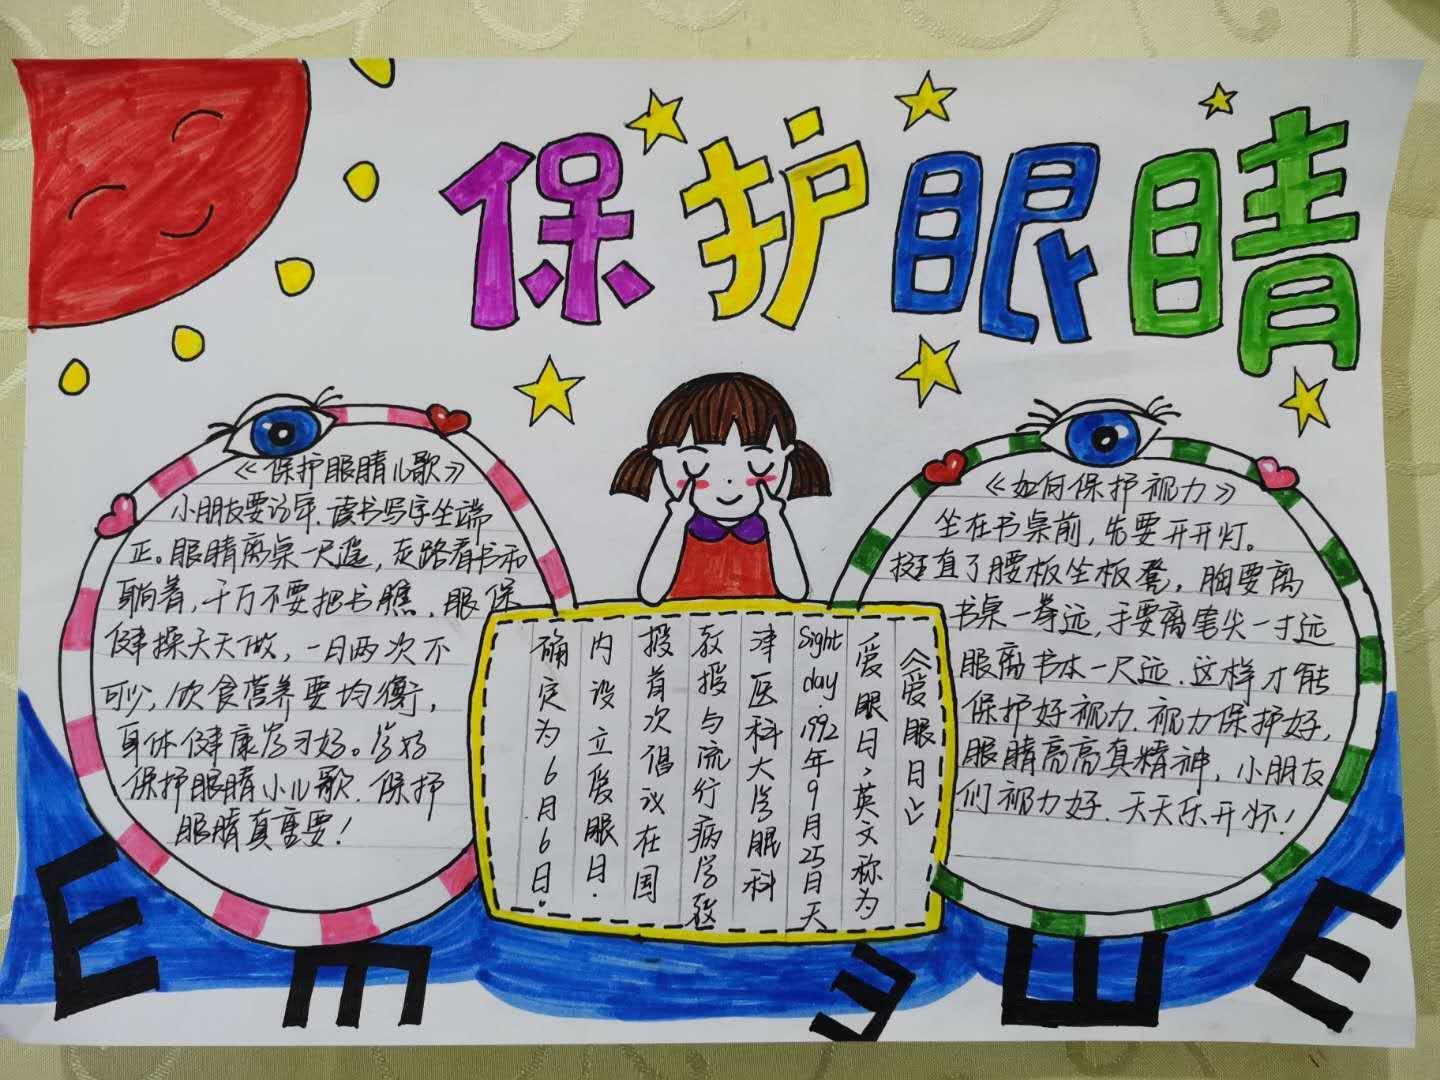 保护眼睛
《保护眼睛儿歌》
小朋友要记牢.读书写字坐端
正。眼睛离桌一尺遥,走路看书和
躺着,千万不要把书瞧.眼保
健操天天做,一日两次不
可少,饮食营养要均衡,
身体健康学习好。学好
保护眼睛小儿歌.保护
眼睛真重要!
《爱眼日》
爱眼日,英文称为
Sight day.1992年9月25日天
津医科大学眼科
教授与流行病学教
授首次倡议在国
内设立爱眼日.
确定为6月6日.
《如何保护视力》
坐在书桌前,先要开开灯。
挺直了腰板坐板凳,胸要离
书桌一拳远,手要离笔尖一寸远
眼离书本一尺远.这样才能
保护好视力.视力保护好,
眼睛亮亮真精神,小朋友
们视力好.天天乐开怀!
E E E E E